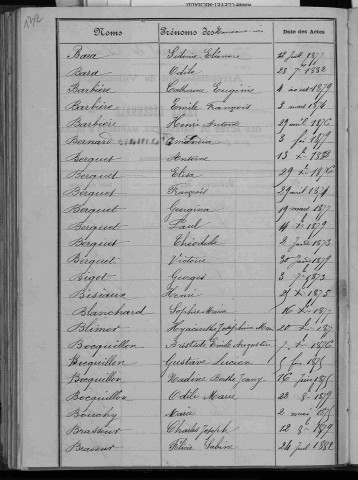 Noms Prénoms des Date des Actes
Bara Sidonie Eléonore juil 1877
Bara Odile 28 7bre 1882
Barbière Catherine Eugénie 4 août 1879
Barbière Emile François 3 mars 1874
Barbière Henri 29 avril 1876
Bernard 3 1879
Berquet Antoine 13 1882
Berquet Elisa 29 1876
Berquet François 29 avril 1874
Berquet Georgina 19 mars 1877
Berquet Paul 14 1879
Berquet Théodule 2 1873
Berquet Victoire 30 1879
Bigot Georges 3 1873
Bisiaux Henri 1875
Blanchard Sophie Maria 16 1877
Blimer Hyacinthe Joséphine Marie 20 1877
Bocquillon Aristide Emile Augustin 7 1876
Bocquillon Gustave Lucien 5
Bocquillon Nadine Berthe Jenny 16 juin
Bocquillon Odile Marie 22 8bre 1879
Bouchy Maria 2
Brasseur Charles Joseph 12 8bre 1879
Brasseur Félicie Sabine 24 juil 1882